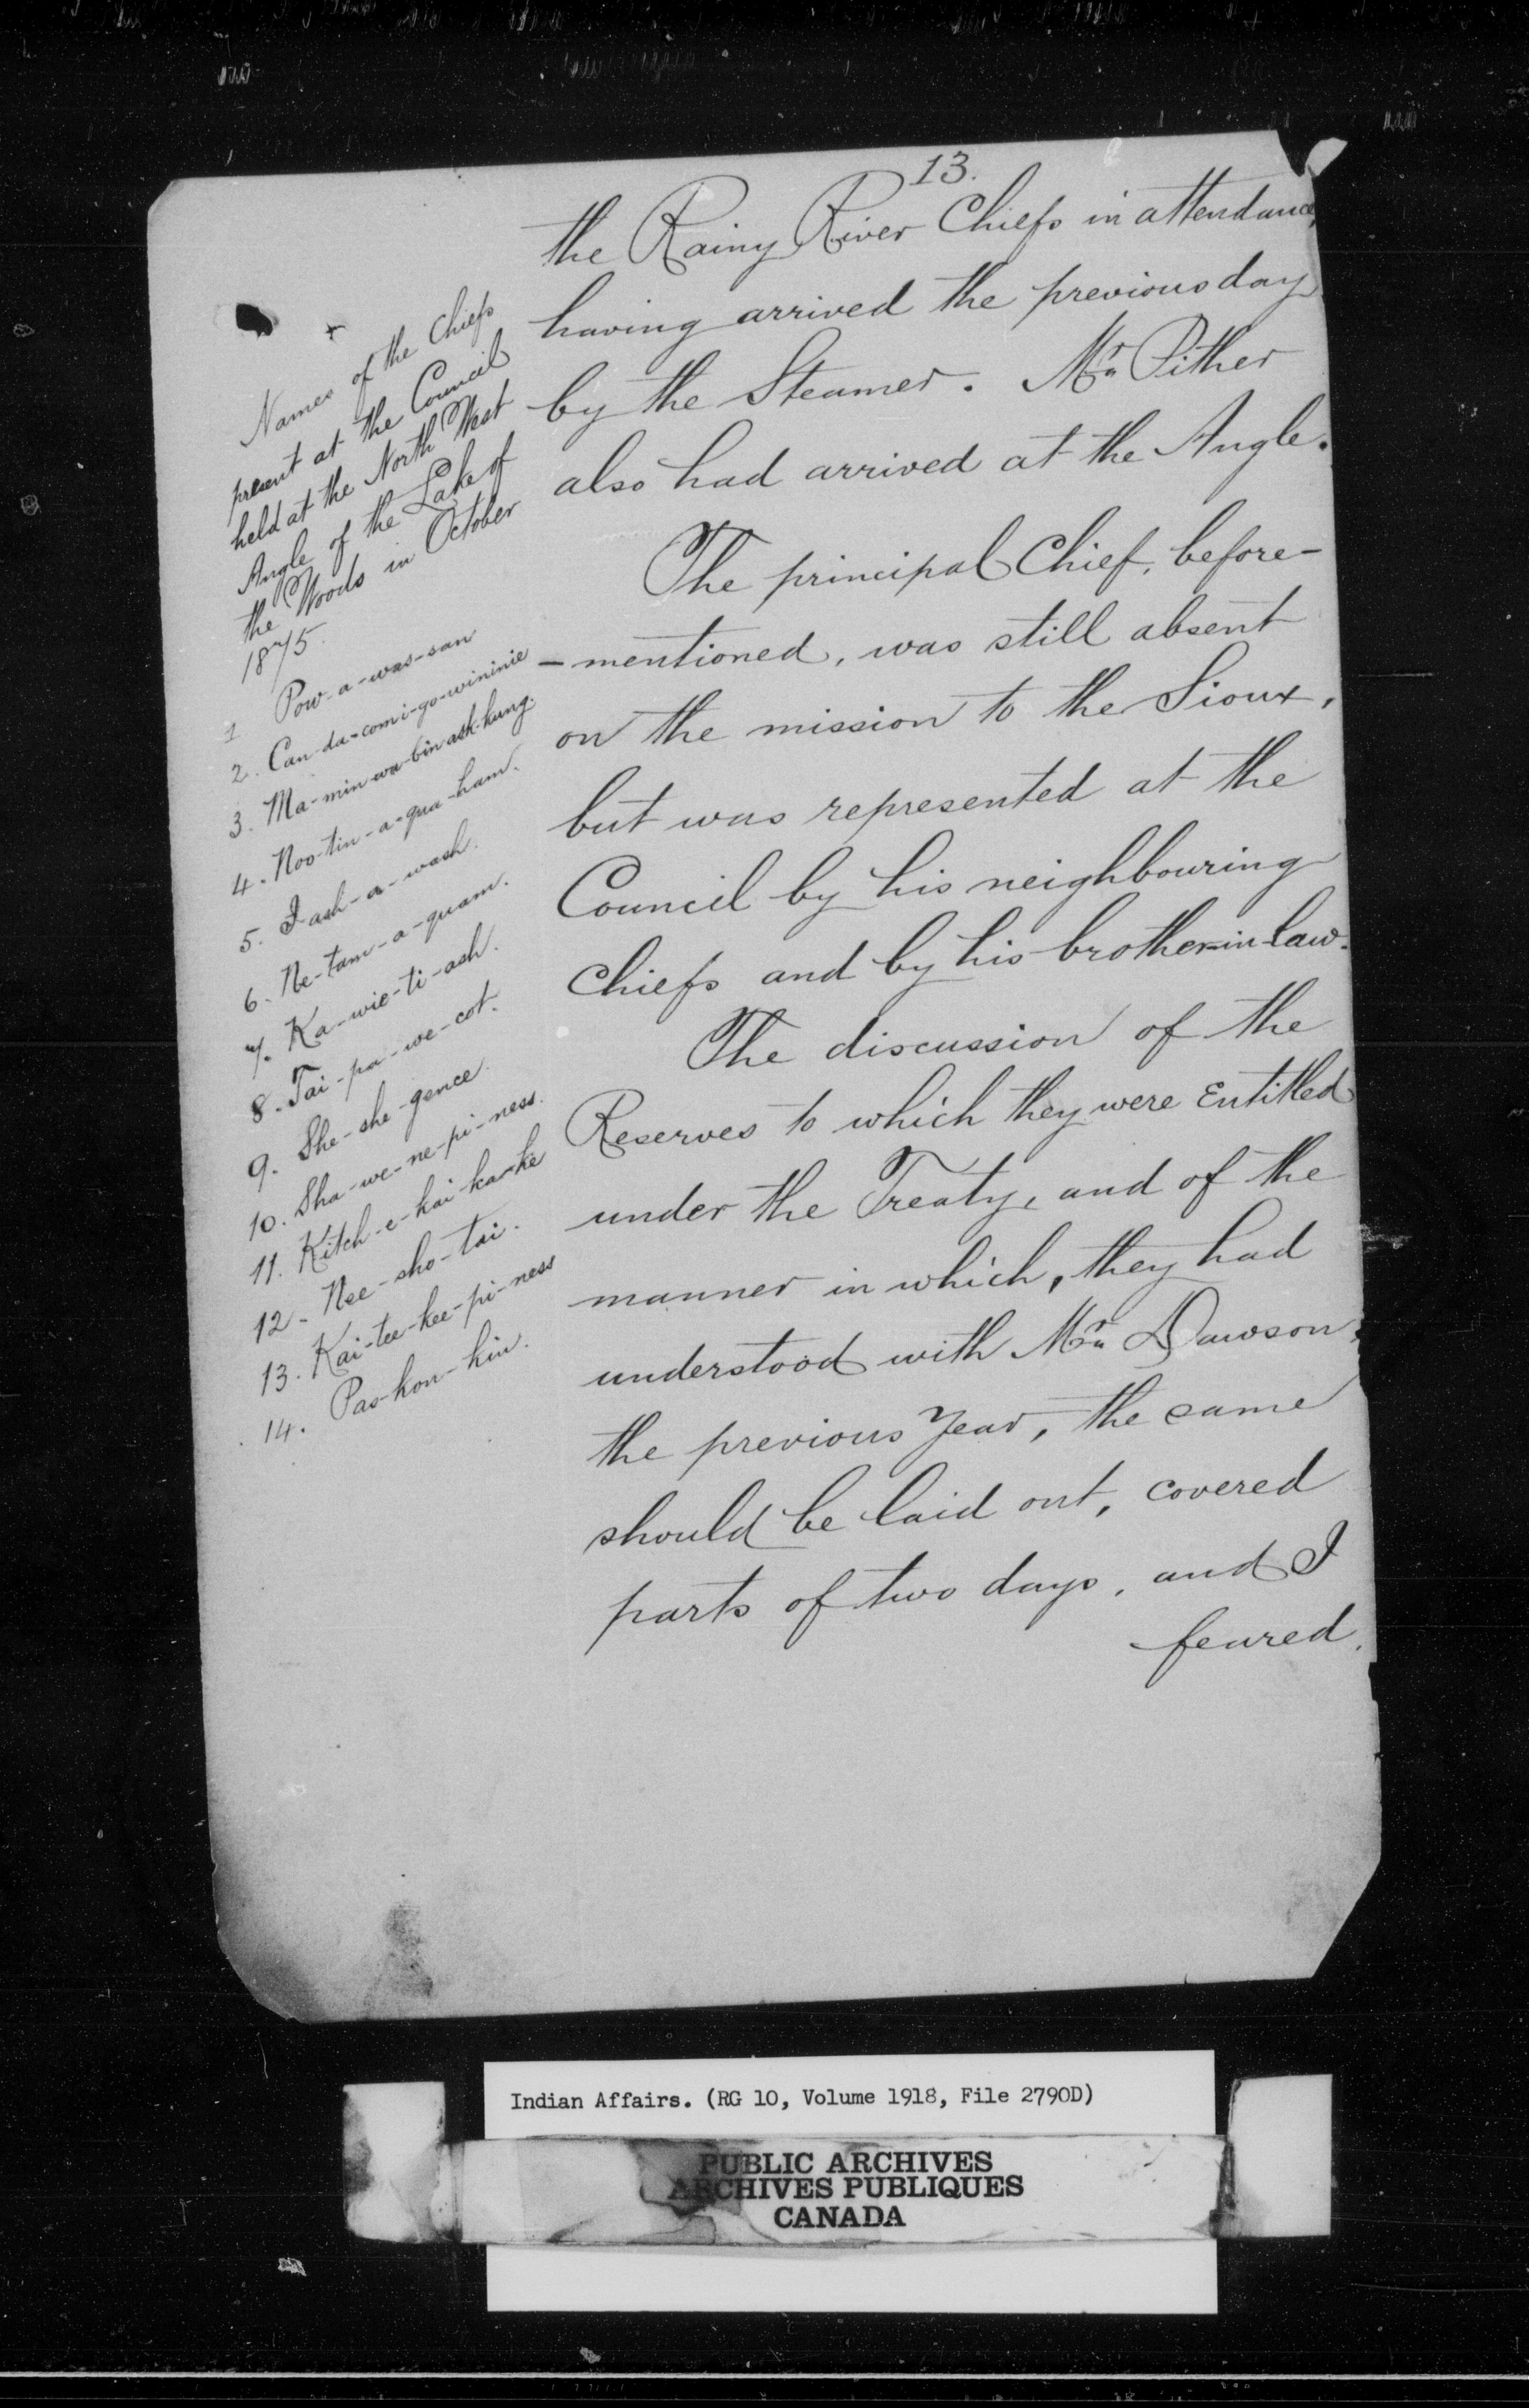 13.
the Rainy River Chiefs in attendance,
having arrived the previous day
by the Steamer. Mr. Pither
also had arrived at the Angle.
The principal Chief, before-
-mentioned, was still absent
on the mission to the Sioux,
but was represented at the
Council by his neighbouring
Chiefs and by his brother-in-law.
The discussion of the
Reserves to which they were Entitled
under the Treaty, and of the
manner in which, they had
understood with Mr. Dawson,
the previous Year, the same
should be laid out, covered
parts of two days, and I
feared.
x
Names of the Chiefs
present at the Council
held at the North West
Angle of the Lake of
the Woods in October
1875.
1 Pow-a-was-san
2. Can-da-com-i-go-wininie
3. Ma-min-wa-bin-ask-kung.
4. Noo-tin-a-qua-ham.
5. I-ash-a-wash.
6. Ne-tam-a-quam.
7. Ka-wie-ti-ash.
8. Tai-pa-we-cot.
9. She-she-gence.
10. Sha-we-ne-pi-ness.
11. Kitch-e-kai-kar-ke
12 - Nee-sho-tai.
13. Kai-tee-kee-pi-ness
14. Pas-kon-kin.
Indian Affairs. (RG 10, Volume 1918, File 2790D)
PUBLIC ARCHIVES
ARCHIVES PUBLIQUES
CANADA